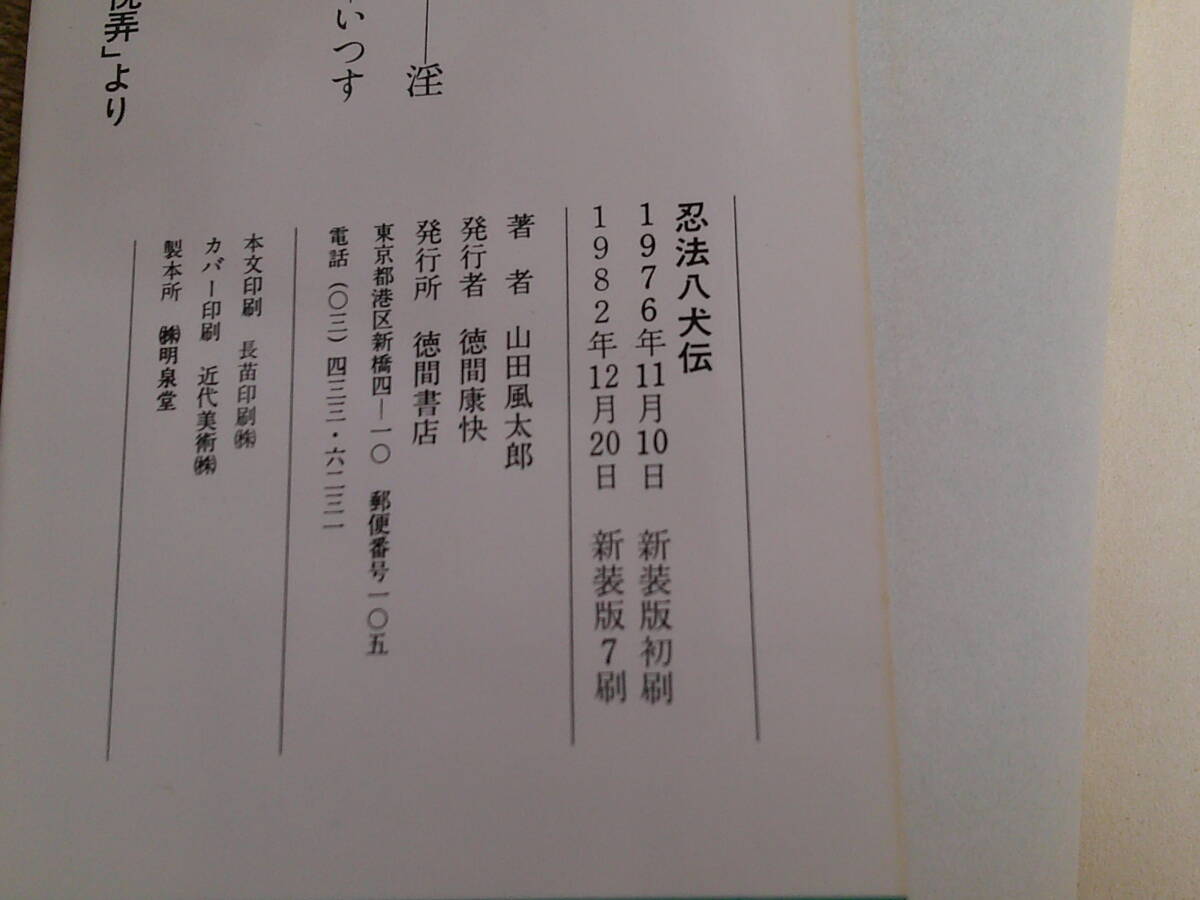 忍法八犬伝
1976年11月10日 新装版初刷
1982年12月20日 新装版7刷
著者 山田風太郎
発行者 徳間康快
発行所 徳間書店
東京都港区新橋四―一〇 郵便番号一〇五
電話(〇三)四三三・六二三一
本文印刷 長苗印刷㈱
カバー印刷 近代美術㈱
製本所 ㈱明泉堂
――淫
いつす
弄」より